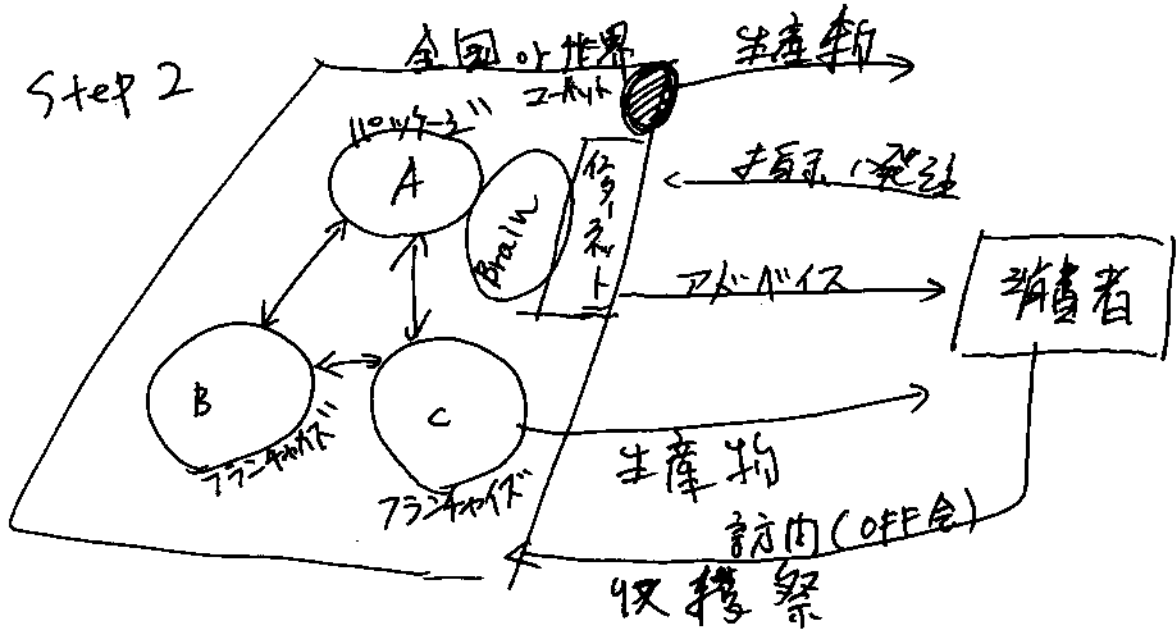 Step 2
全国 or 世界
生産物
パッケージ
A
Brain
インターネット
指示、発注
アドバイス
消費者
B
フランチャイズ
C
フランチャイズ
生産物
訪問(OFF会)
収穫祭